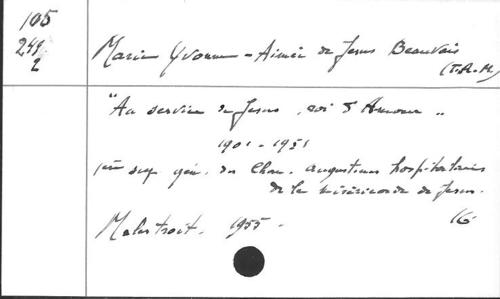 105
249
2
Marie Yvonne-Aimée de Jesus Beauvais
(T.R.M.)
"Au service de Jesus, roi d'Amour"
1901-1951
1ère sup. gén. des Chan. augustines hospitalières
de la miséricorde de Jesus.
Malestroit. 1955. 16°